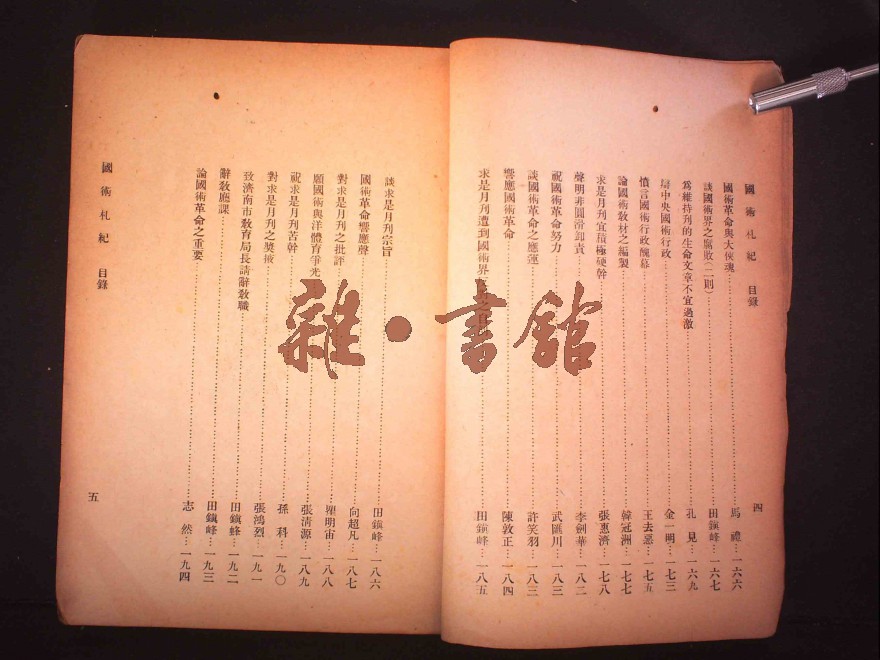 國術札紀 目錄 四
國術革命與大俠魂……馬 禮…一六六
談國術界之腐敗(二則)……田鎭峰…一六七
爲維持刊的生命文章不宜過激……孔 見…一六九
中央國術行政……金一明…一七三
憤言國術行政醜幕……王去惡…一七五
論國術敎材之編製……韓冠洲…一七七
求是月刊宜積極硬幹……張惠濟…一七八
聲明非圓滑卸責……李劍華…一八二
祝國術革命努力……武匯川…一八三
談國術革命之應運……許笑羽…一八三
響應國術革命……陳敦正…一八四
求是月刊遭到國術界……田鎭峰…一八五
談求是月刊宗旨……田鎭峰…一八六
國術革命響應聲……向超凡…一八七
對求是月刊之批評……瞿明宙…一八八
願國術與洋體育爭光……張清源…一八九
祝求是月刊苦幹……孫 科…一九〇
對求是月刊之獎掖……張鴻烈…一九一
致濟南市敎育局長請辭敎職……田鎭峰…一九二
辭敎廳課……田鎭峰…一九三
論國術革命之重要……志 然…一九四
國術札紀 目錄 五
雜·書館